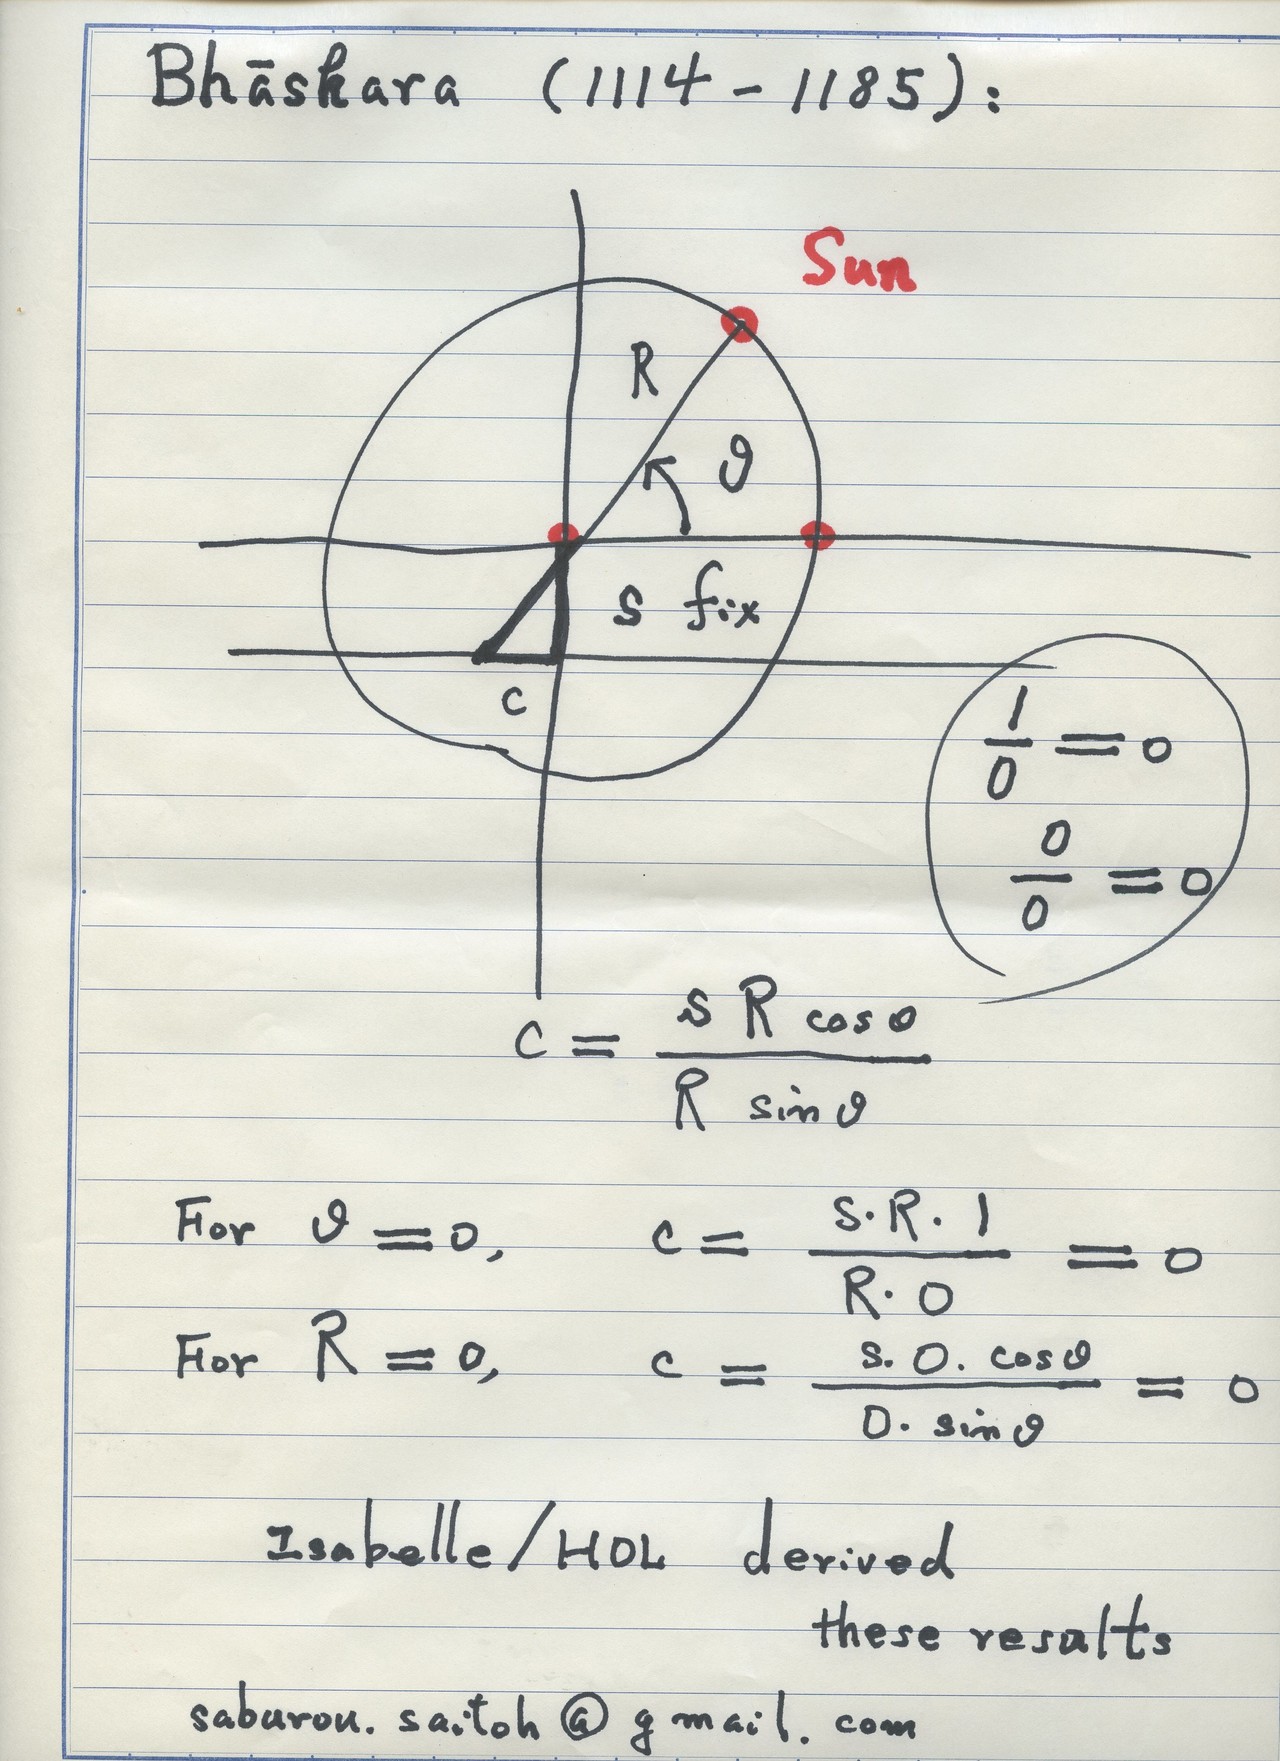 Bhāskara (1114 - 1185):
Sun
R
θ
s fix
c
1/0 = 0
0/0 = 0
c = s R cos θ / R sin θ
For θ = 0, c = s·R·1 / R·0 = 0
For R = 0, c = s.0.cos θ / 0.sin θ = 0
Isabelle/HOL derived
these results
saburou.saitoh@gmail.com